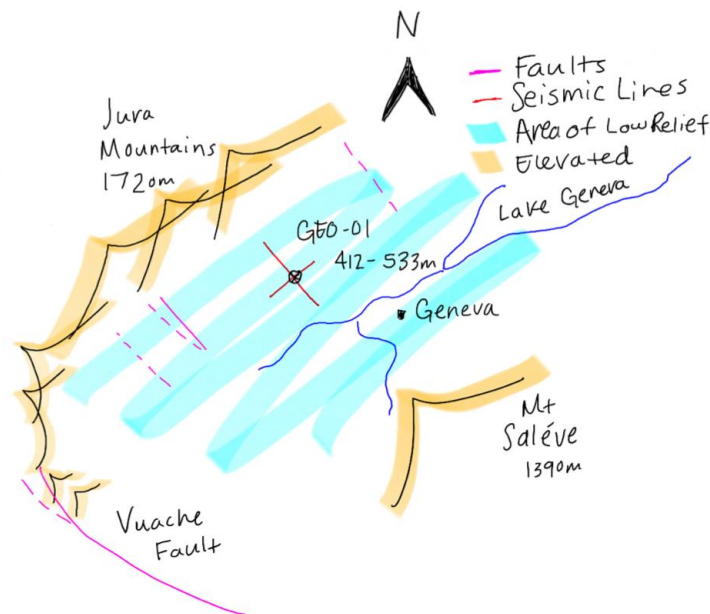 N
Faults
Seismic Lines
Area of Low Relief
Elevated
Jura
Mountains
1720m
Lake Geneva
GEO-01
412-533m
Geneva
Mt
Saléve
1390m
Vuache
Fault